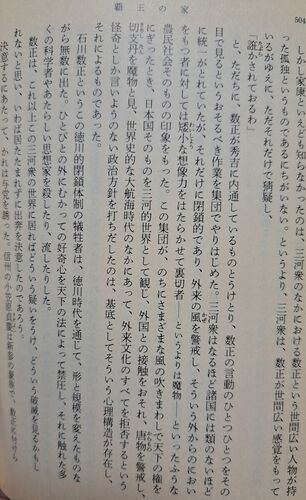 覇王の家
504
し、家康といえども知らなかったのは、三河衆のなかにおける数正という世間広い人物が持
った孤独というものであるにちがいない。というより、三河衆は、数正が世間広い感覚をもって
いるがゆえに、ただそれだけで猜疑し、
「誰かされておるわ」
と、ただちに、数正が秀吉に内通しているものとうけとり、数正の言動のひとつひとつをその
目で見るというおそるべき作業を集団でやりはじめた。三河衆はなるほど諸国には類のないほど
に統一がとれていたが、それだけに閉鎖的であり、外来の風を警戒し、そういう外からのにおい
をもつ者に対しては矮小な想像力をはたらかせて裏切者――というよりは魔物――といったふうな
農民社会そのものの印象をもった。この集団が、のちにさまざまな風の吹きまわしで天下の権を
にぎったとき、日本国そのものを三河的世界として観じ、外国との接触をおそれ、唐物を警戒し、
切支丹を魔物と見、世界史的な大航海時代のなかにあって、外来文化のすべてを拒否するという
怪奇としか言いようのない政治方針を打ちだしたのは、基底としてそういう心理構造が存在し、
それによるものであった。
石川数正というこの徳川的閉鎖体制の犠牲者は、徳川時代を通じて、形と規模を変えたものな
がら無数に出た。ひとびとの外にむかっての好奇心を天下の法によって禁圧し、それに触れた多
くの科学者やあたらしい思想家を殺したり、流したりした。
数正は、これ以上この三河衆の世界に居ればどういう疑いをうけ、どういう破滅を見るかもし
れないと思い、いわば居たたまれずに出奔を決意したのであろう。
決意するにあたって、かれは与党を誘った。信州の小笠原貞慶は新参の豪族で、数正が付けら